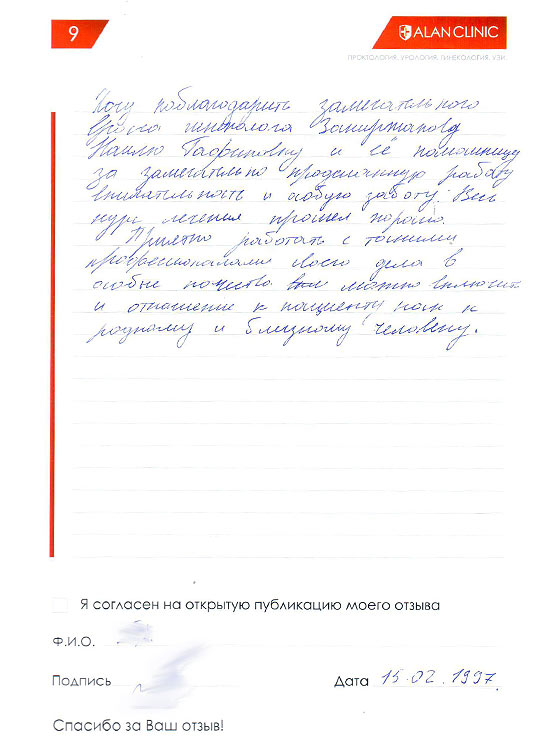 9
ALAN CLINIC
ПРОКТОЛОГИЯ, УРОЛОГИЯ, ГИНЕКОЛОГИЯ, УЗИ
Хочу поблагодарить замечательного
врача гинеколога
Наилю Гафиповну и её помощницу
за замечательно проделанную работу
внимательность и особую заботу. Весь
курс лечения прошел хорошо.
Приятно работать с такими
профессионалами своего дела в
особые качества можно включить
и отношение к пациенту как к
родному и близкому человеку.
Я согласен на открытую публикацию моего отзыва
Ф.И.О.
Подпись
Дата 15.02.1997
Спасибо за Ваш отзыв!